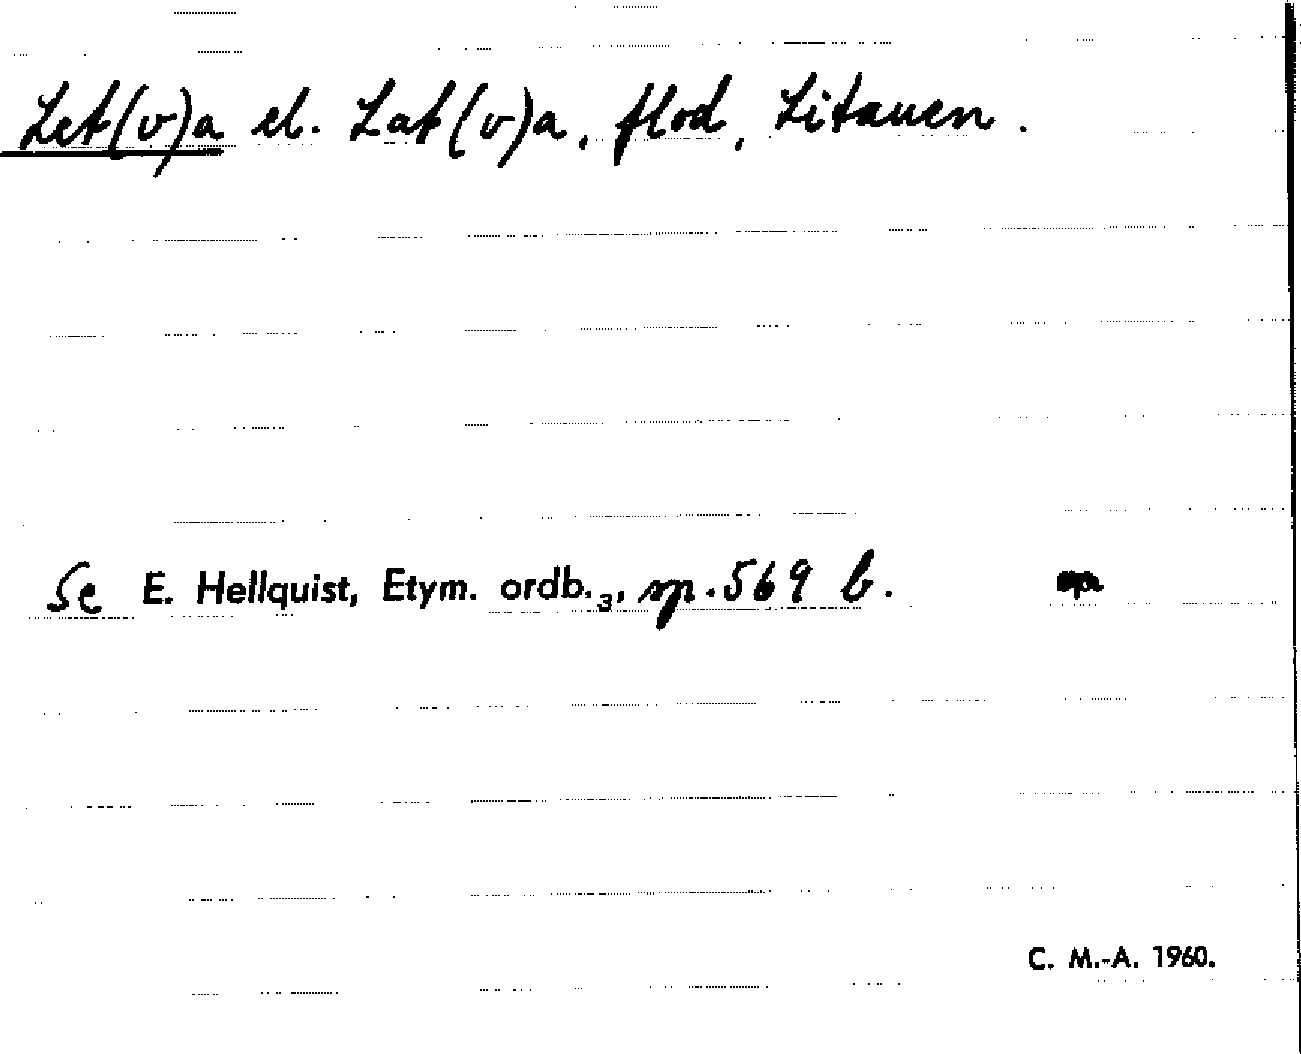 Let(v)a el. Lat(v)a, flod, Litauen.
Se E. Hellquist, Etym. ordb.₃, sp. 569 b.
C. M.-A. 1960.